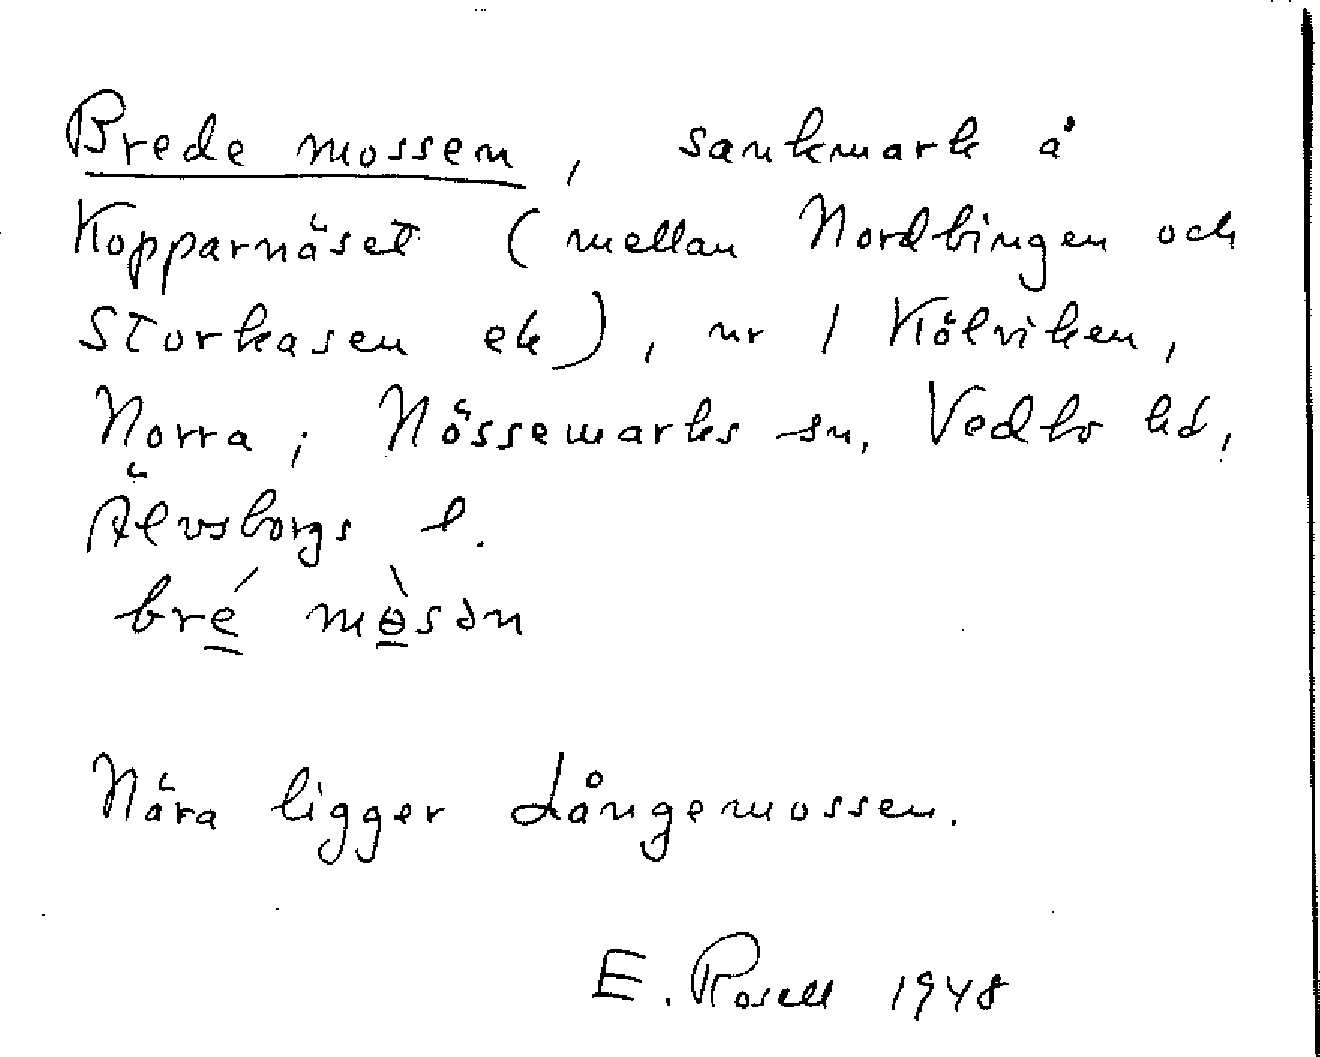 Brede mossen, sankmark å
Kopparnäset (mellan Nordbingen och
Storkasen ek), nr 1 Kölviken,
Norra, Nössemarks sn, Vedbo hd,
Älvsborgs l.
bré mèsən
Nära ligger Långemossen.
E. Rosell 1948